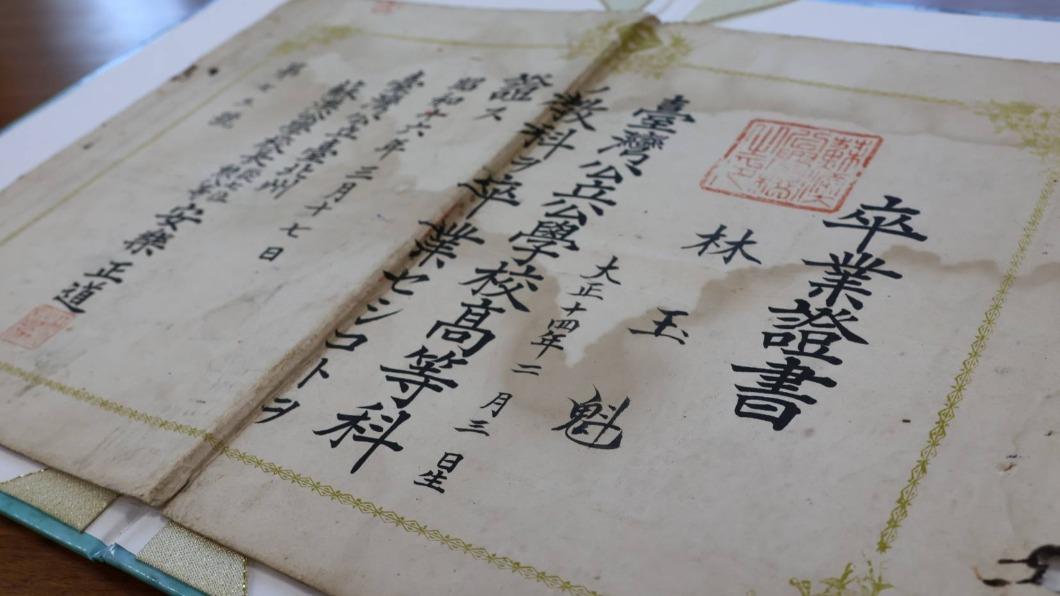 卒業證書
林玉魁
大正十四年二月三日生
臺灣公立公學校高等科
教科ヲ卒業セシコトヲ
證ス
昭和十六年三月十七日
安樂正道